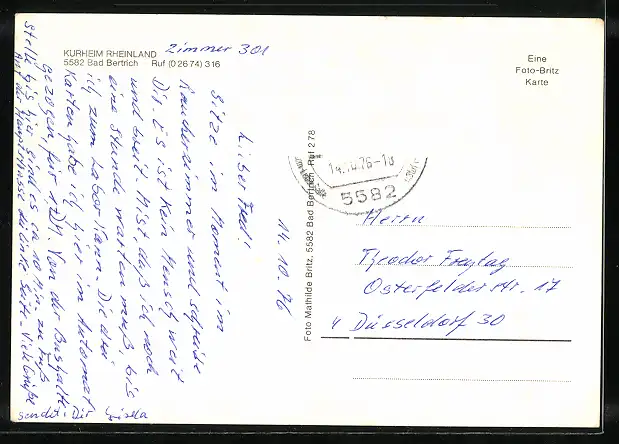 KURHEIM RHEINLAND
5582 Bad Bertrich Ruf (0 26 74) 316
Zimmer 301
14.10.76
Lieber Fred!
Sitze im Moment im
Raucherzimmer und schreibe
Dir. Es ist kein Mensch weit
und breit. Mist, daß ich noch
eine Stunde warten muß, bis
ich zum Labor kann. Die drei
Karten habe ich hier im Automat
gezogen, für 1 DM. Von der Bushalte-
stelle bis hier sind es ca 10 Min. zu Fuß
Auf der Hauptstrasse die linke Seite - Viele Grüße
sendet Dir Gisela
Foto Mathilde Britz, 5582 Bad Bertrich, Ruf 278
Eine
Foto-Britz
Karte
14.10.76-18
5582
Herrn
Theodor Freytag
Osterfelder Str. 17
4 Düsseldorf 30